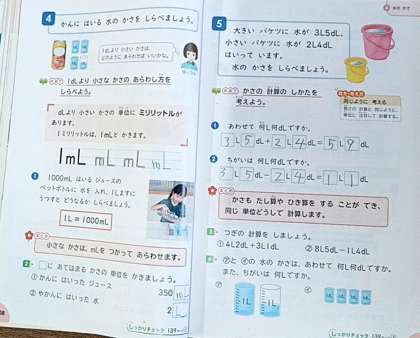 4 かんに はいる 水の かさを しらべましょう。
1dLより 小さい かさは、
どのように あらわせば いいかな。
1dLより 小さな かさの あらわし方を
しらべよう。
dLより 小さい かさの 単位に ミリリットルが
あります。
1ミリリットルは、1mLと かきます。
1mL mL mL mL
1 1000mL はいる ジュースの
ペットボトルに 水を 入れ、1Lますに
うつすと どうなるか しらべましょう。
1L=1000mL
小さな かさは、mLを つかって あらわせます。
2 □に あてはまる かさの 単位を かきましょう。
① かんに はいった ジュース 350 mL
② やかんに はいった 水 2 L
しっかりチェック 139
5 大きい バケツに 水が 3L5dL、
小さい バケツに 水が 2L4dL
はいって います。
水の かさを しらべましょう。
かさの 計算の しかたを
考えよう。
同じように 考える
1 あわせて 何L何dLですか。
3L5dL+2L4dL=5L9dL
2 ちがいは 何L何dLですか。
3L5dL-2L4dL=1L1dL
かさも たし算や ひき算を する ことが でき、
同じ 単位どうしで 計算します。
3 つぎの 計算を しましょう。
① 4L2dL+3L1dL ② 8L5dL-1L4dL
4 ㋐と ㋑の 水の かさは、あわせて 何L何dLですか。
また、ちがいは 何L何dLですか。
㋐ 1L 1L
㋑ 1L 1L 1L 1L
しっかりチェック 139